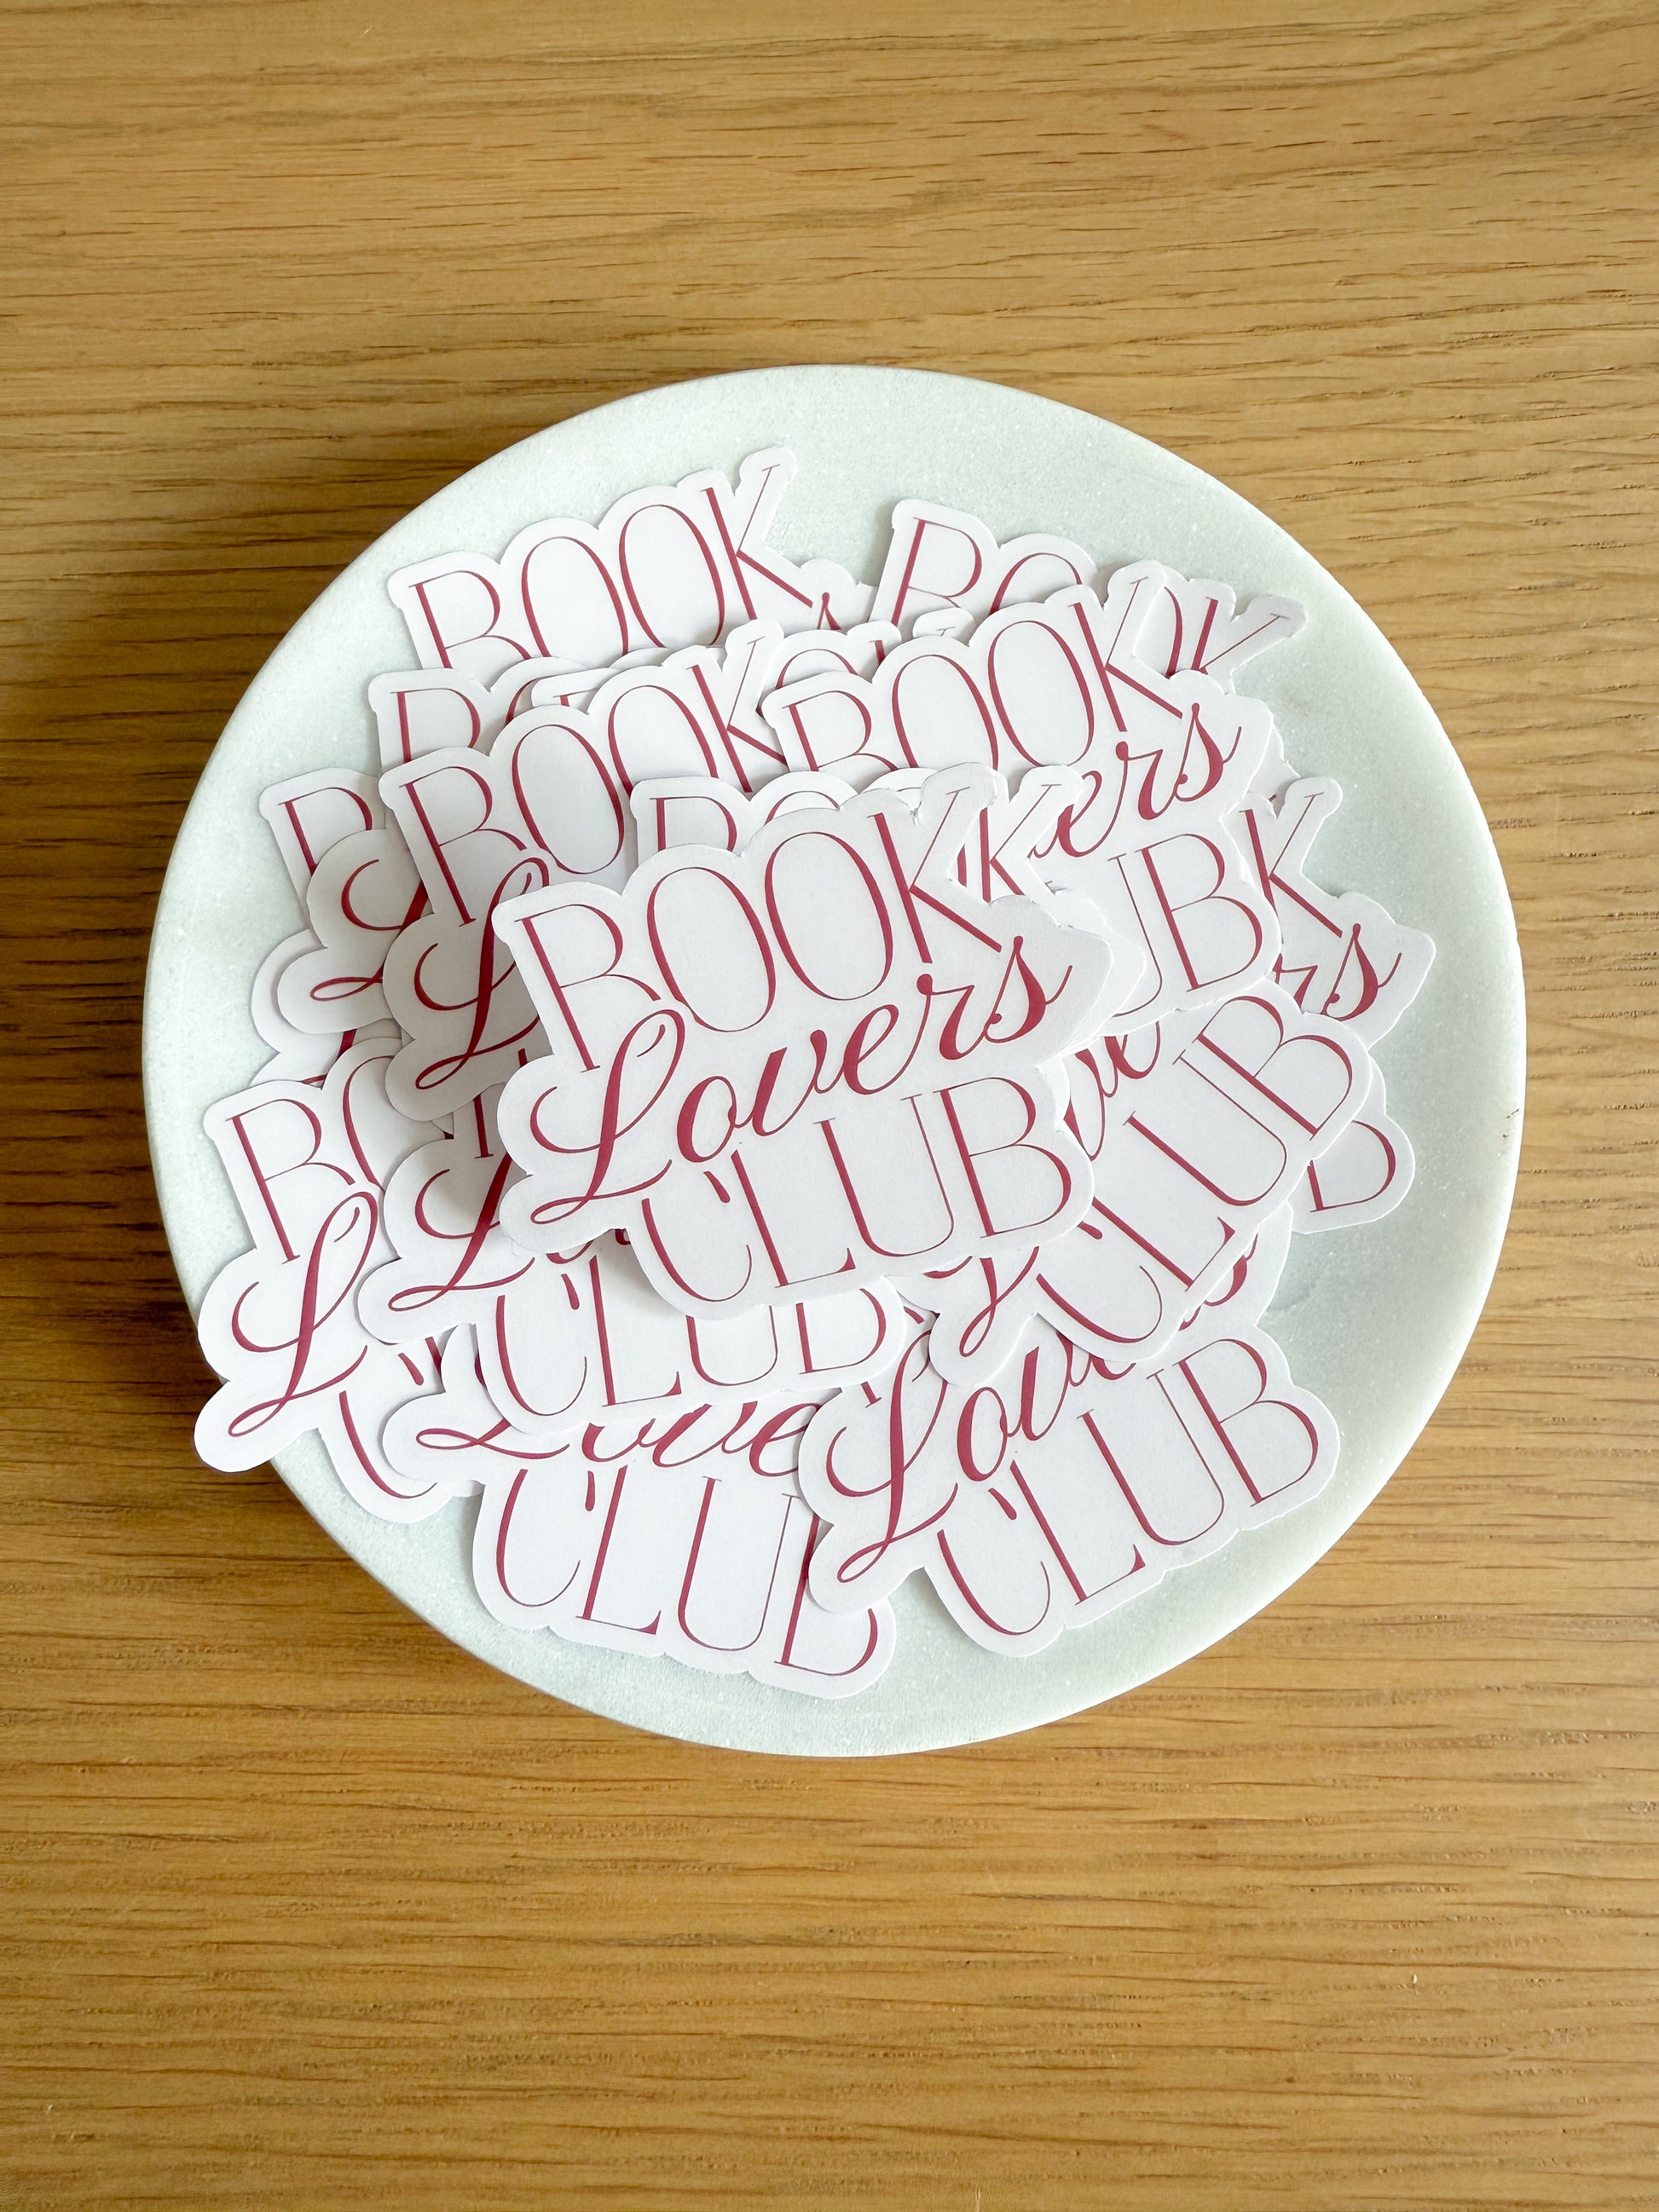 BOOK
Lovers
CLUB